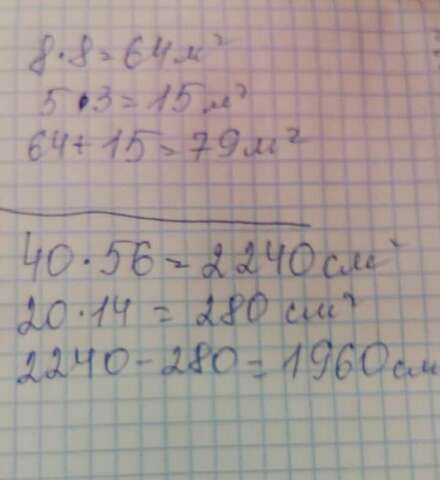 8·8=64м²
5·3=15м²
64+15=79м²
40·56=2240см²
20·14=280см²
2240-280=1960см